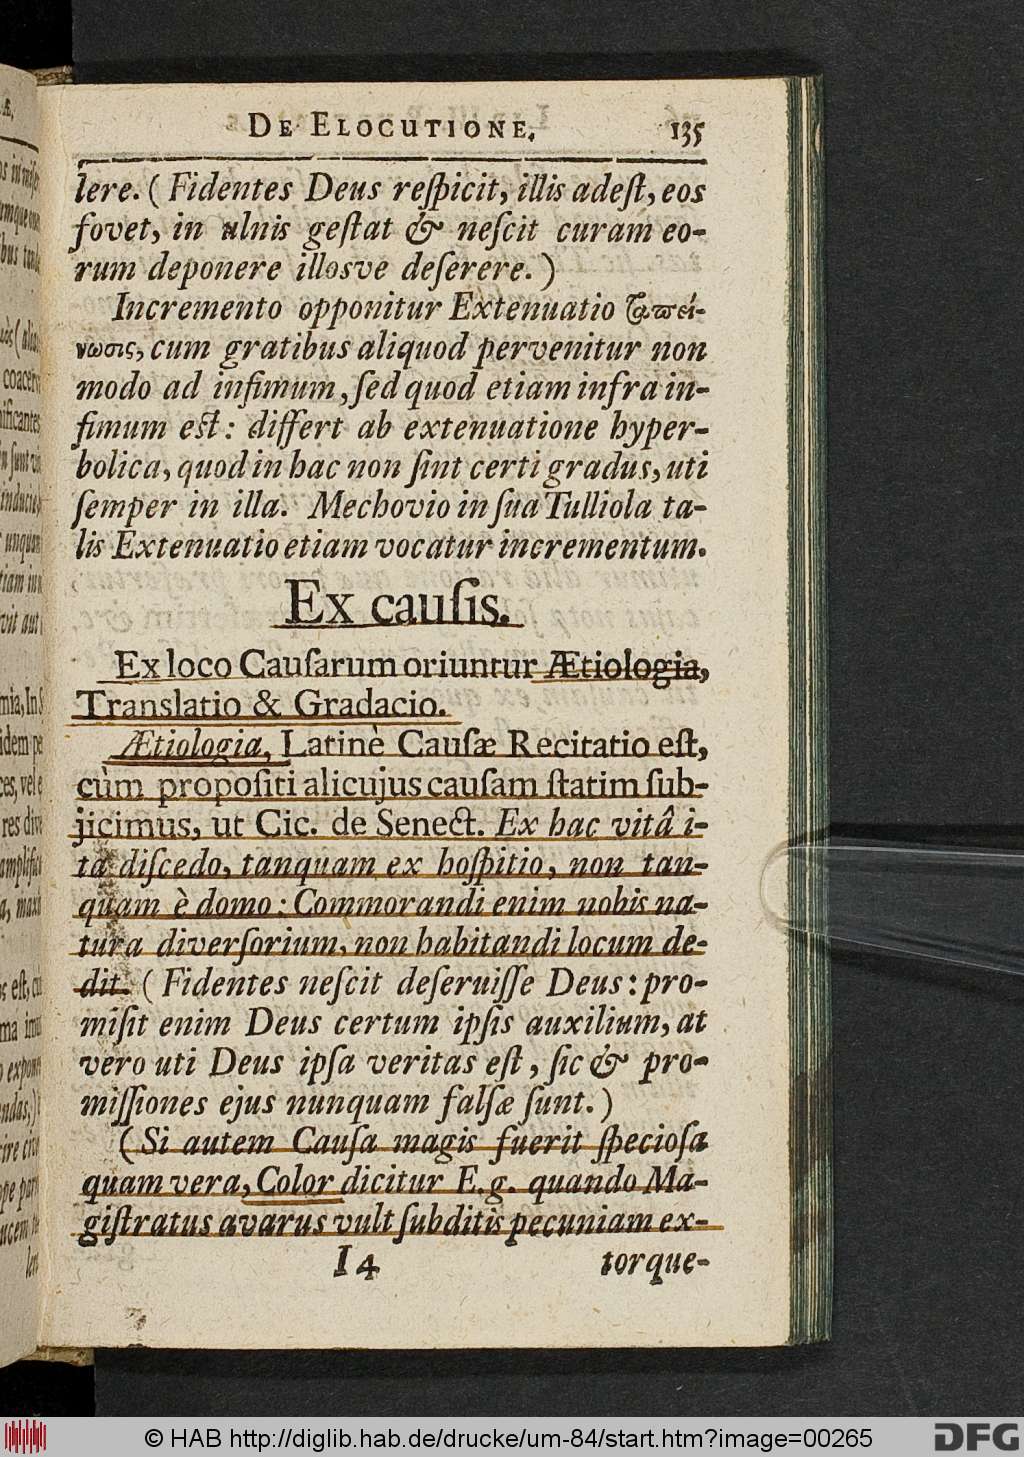 DE ELOCUTIONE. 135
lere. (Fidentes Deus reſpicit, illis adeſt, eos
fovet, in ulnis geſtat & neſcit curam eo-
rum deponere illosve deſerere.)
Incremento opponitur Extenuatio ταπεί-
νωσις, cum gratibus aliquod pervenitur non
modo ad infimum, ſed quod etiam infra in-
fimum eſt: differt ab extenuatione hyper-
bolica, quod in hac non ſint certi gradus, uti
ſemper in illa. Mechovio in ſua Tulliola ta-
lis Extenuatio etiam vocatur incrementum.
Ex cauſis.
Ex loco Cauſarum oriuntur Ætiologia,
Translatio & Gradacio.
Ætiologia, Latinè Cauſæ Recitatio eſt,
cùm propoſiti alicujus cauſam ſtatim ſub-
jicimus, ut Cic. de Senect. Ex hac vitâ i-
ta diſcedo, tanquam ex hoſpitio, non tan-
quam è domo: Commorandi enim nobis na-
tura diverſorium, non habitandi locum de-
dit. (Fidentes neſcit deſeruiſſe Deus: pro-
miſit enim Deus certum ipſis auxilium, at
vero uti Deus ipſa veritas eſt, ſic & pro-
miſſiones ejus nunquam falſæ ſunt.)
(Si autem Cauſa magis fuerit ſpecioſa
quam vera, Color dicitur E.g. quando Ma-
giſtratus avarus vult ſubditis pecuniam ex-
I 4 torque-
© HAB http://diglib.hab.de/drucke/um-84/start.htm?image=00265 DFG